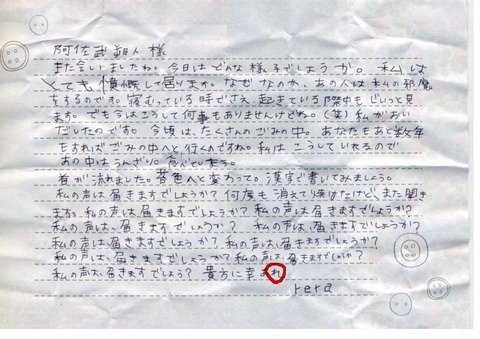 阿佐武朔人 様
また会いましたね。今日はどんな様子でしょうか。私は
とても憤慨して居ります。なぜなのか、あの人は私の邪魔
をするのです。寝むっている時でさえ、起きている際中もじいっと見
ます。でも今はこうして何事もありませんけどね。(笑)私がおい
だしたのです。今頃は、たくさんのごみの中。あなたもあと数年
をすればごみの中へと行くんですね。私はこうしていれるので
あの中はうんざり。
首が流れました。 色へと変わっての漢字で書いてみましょう。
私の声は届きますでしょうか?何度も消えて焼けたけど、また聞き
ますか。私の声は届きますでしょうか?私の声は届きますでしょうか?
私の声は、届きますでしょうか? 私の声は届きますでしょうか?
私の声は届きますでしょうか?私の声は、届きますでしょうか?
私の声は、届きますでしょうか?私の声は届きますでしょうか?
私の声は、届きますでしょう?貴方に幸あれ
rera